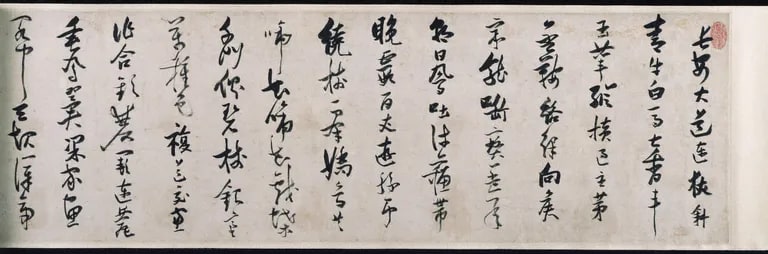 長安大道連狹斜
青牛白馬七香車
玉輦縱橫過主第
金鞭絡繹向侯
家龍銜寶蓋承
朝日鳳吐流蘇帶
晚霞百丈遊絲爭
繞樹一群嬌鳥共
啼花啼花戲蝶
千門側碧樹銀臺
萬種色複道交窗
作合歡雙闕連甍
垂鳳翼梁家畫
閣中天起漢帝